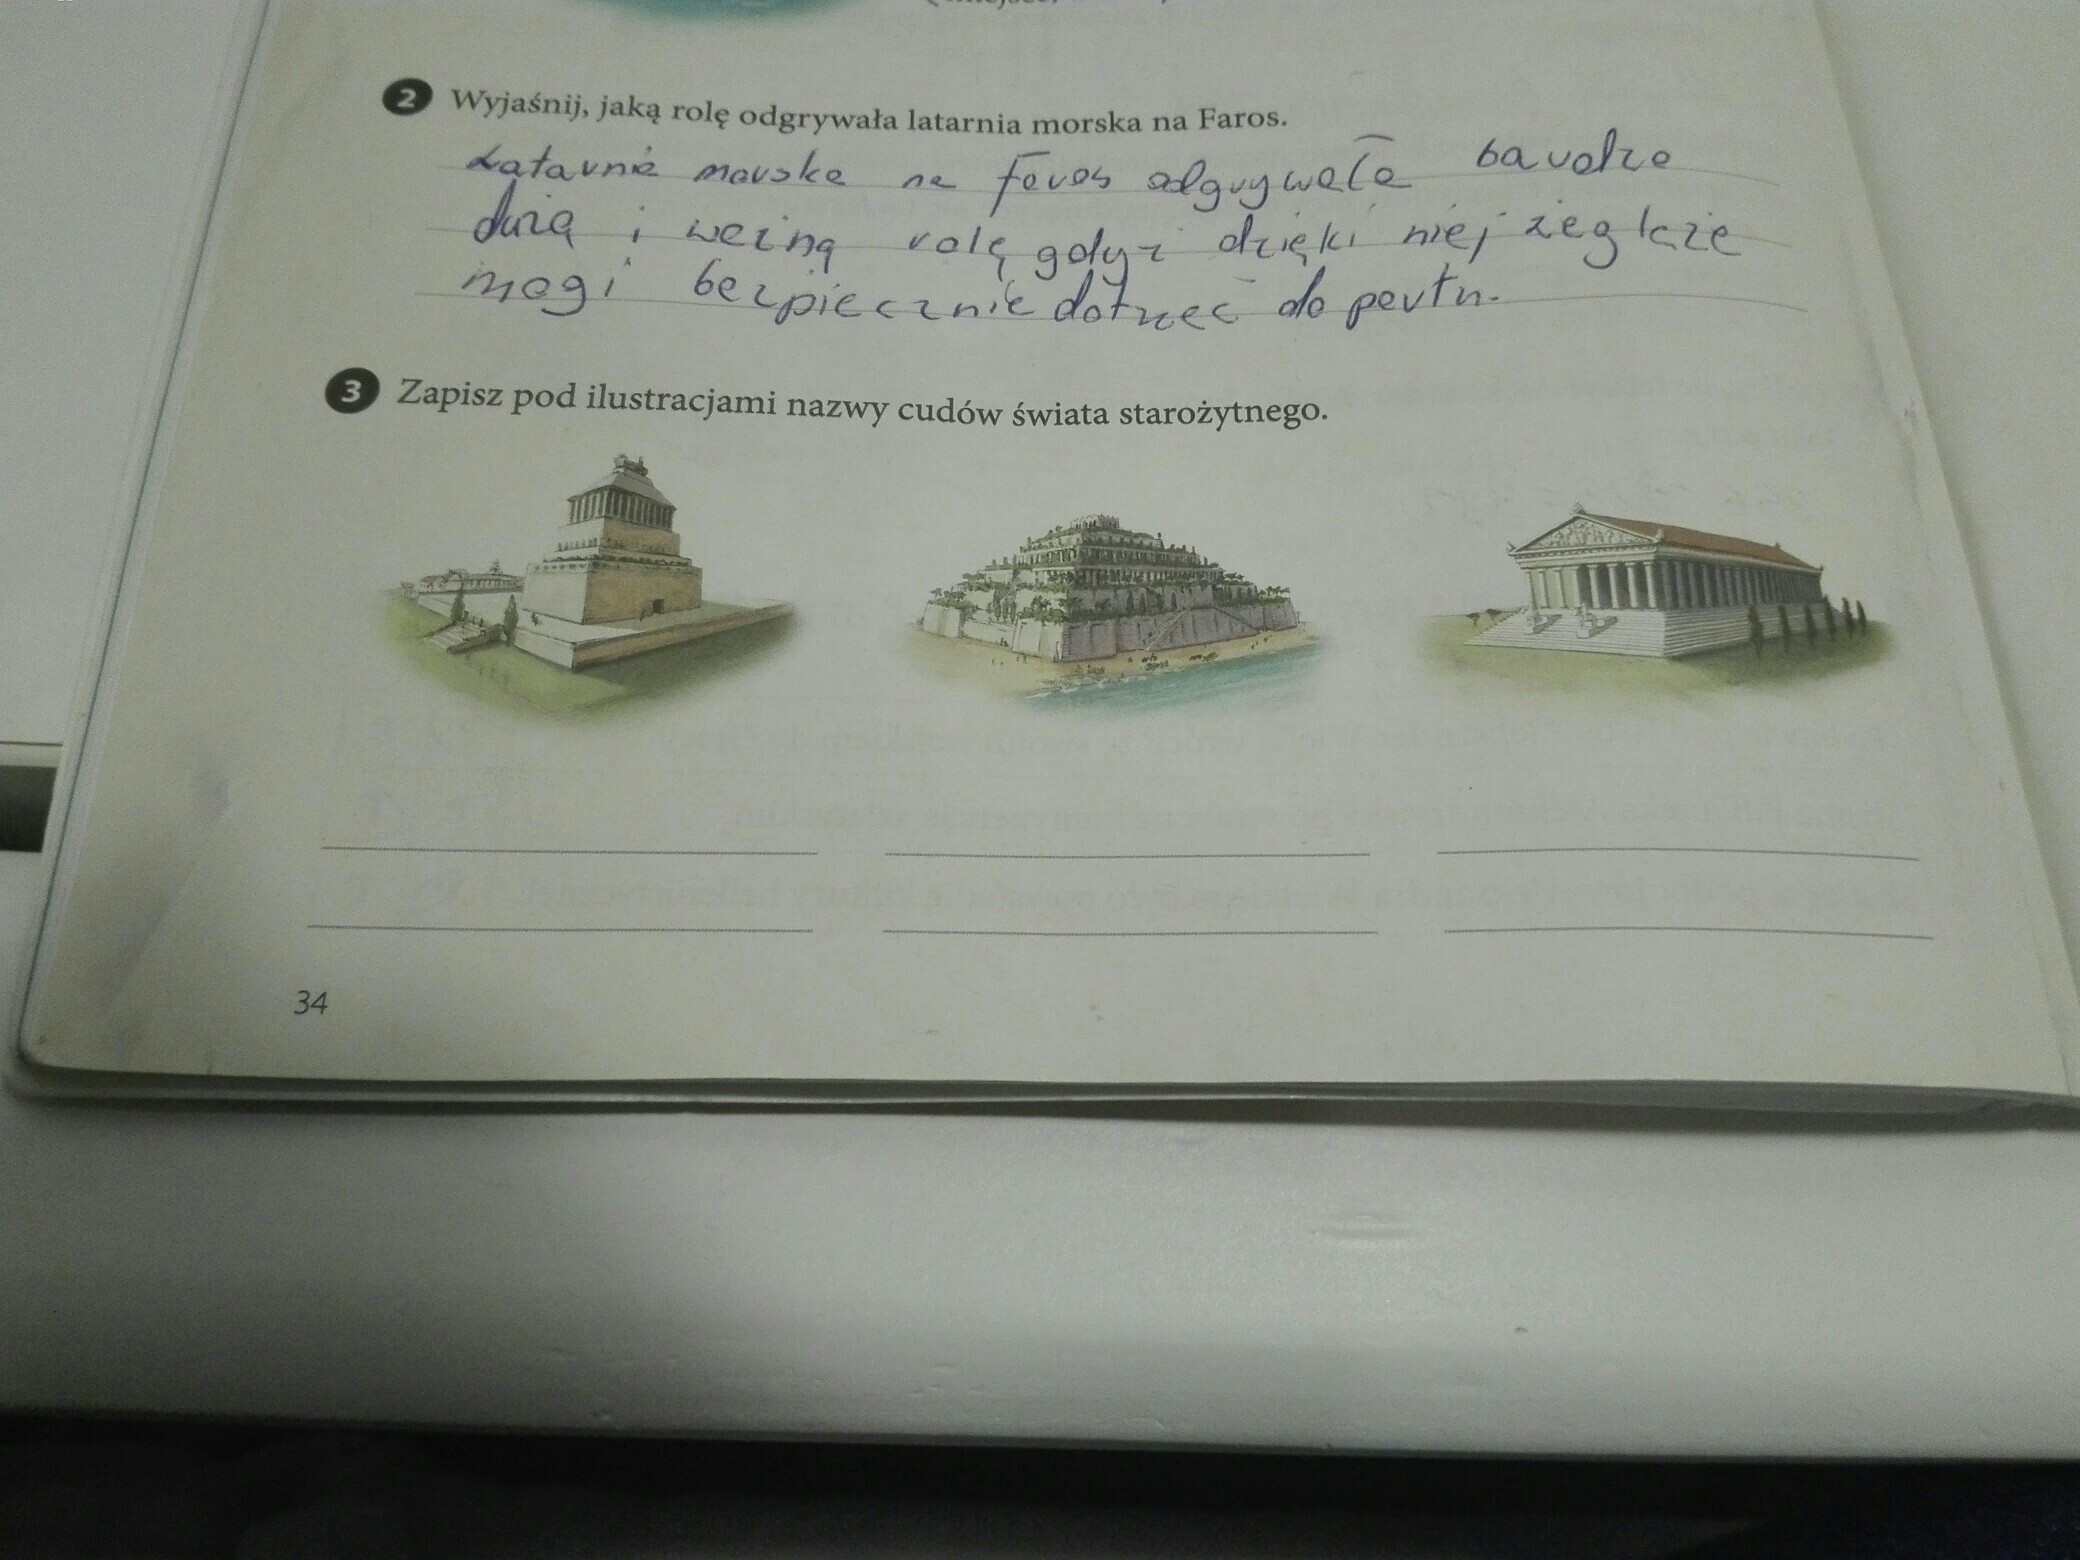 2 Wyjaśnij, jaką rolę odgrywała latarnia morska na Faros.
Latarnia morska na Faros odgrywała bardzo
dużą i ważną rolę gdyż dzięki niej żeglaże
mogi bezpiecznie dotrzeć do portu.
3 Zapisz pod ilustracjami nazwy cudów świata starożytnego.
34